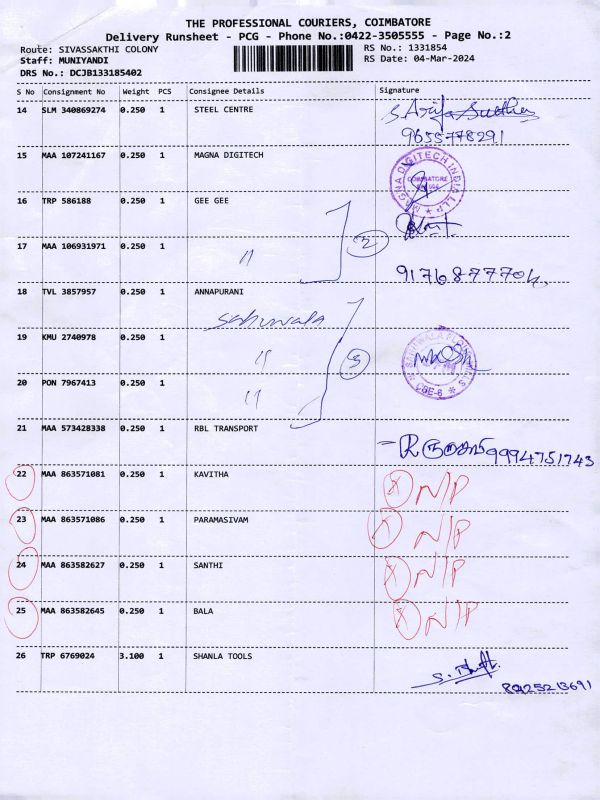 THE PROFESSIONAL COURIERS, COIMBATORE
Delivery Runsheet - PCG - Phone No.:0422-3505555 - Page No.:2
Route: SIVASSAKTHI COLONY RS No.: 1331854
Staff: MUNIYANDI RS Date: 04-Mar-2024
DRS No.: DCJB133185402
S No Consignment No Weight PCS Consignee Details Signature
14 SLM 340869274 0.250 1 STEEL CENTRE
9655778291
15 MAA 107241167 0.250 1 MAGNA DIGITECH
MAGNA DIGITECH INDIA LLP
COIMBATORE
16 TRP 586188 0.250 1 GEE GEE
2
17 MAA 106931971 0.250 1 "
9176877704
18 TVL 3857957 0.250 1 ANNAPURANI
Sahuwala
19 KMU 2740978 0.250 1 "
3
20 PON 7967413 0.250 1 "
CBE-6
21 MAA 573428338 0.250 1 RBL TRANSPORT
9994751743
22 MAA 863571081 0.250 1 KAVITHA X N/P
23 MAA 863571086 0.250 1 PARAMASIVAM X N/P
24 MAA 863582627 0.250 1 SANTHI X N/P
25 MAA 863582645 0.250 1 BALA X N/P
26 TRP 6769024 3.100 1 SHANLA TOOLS